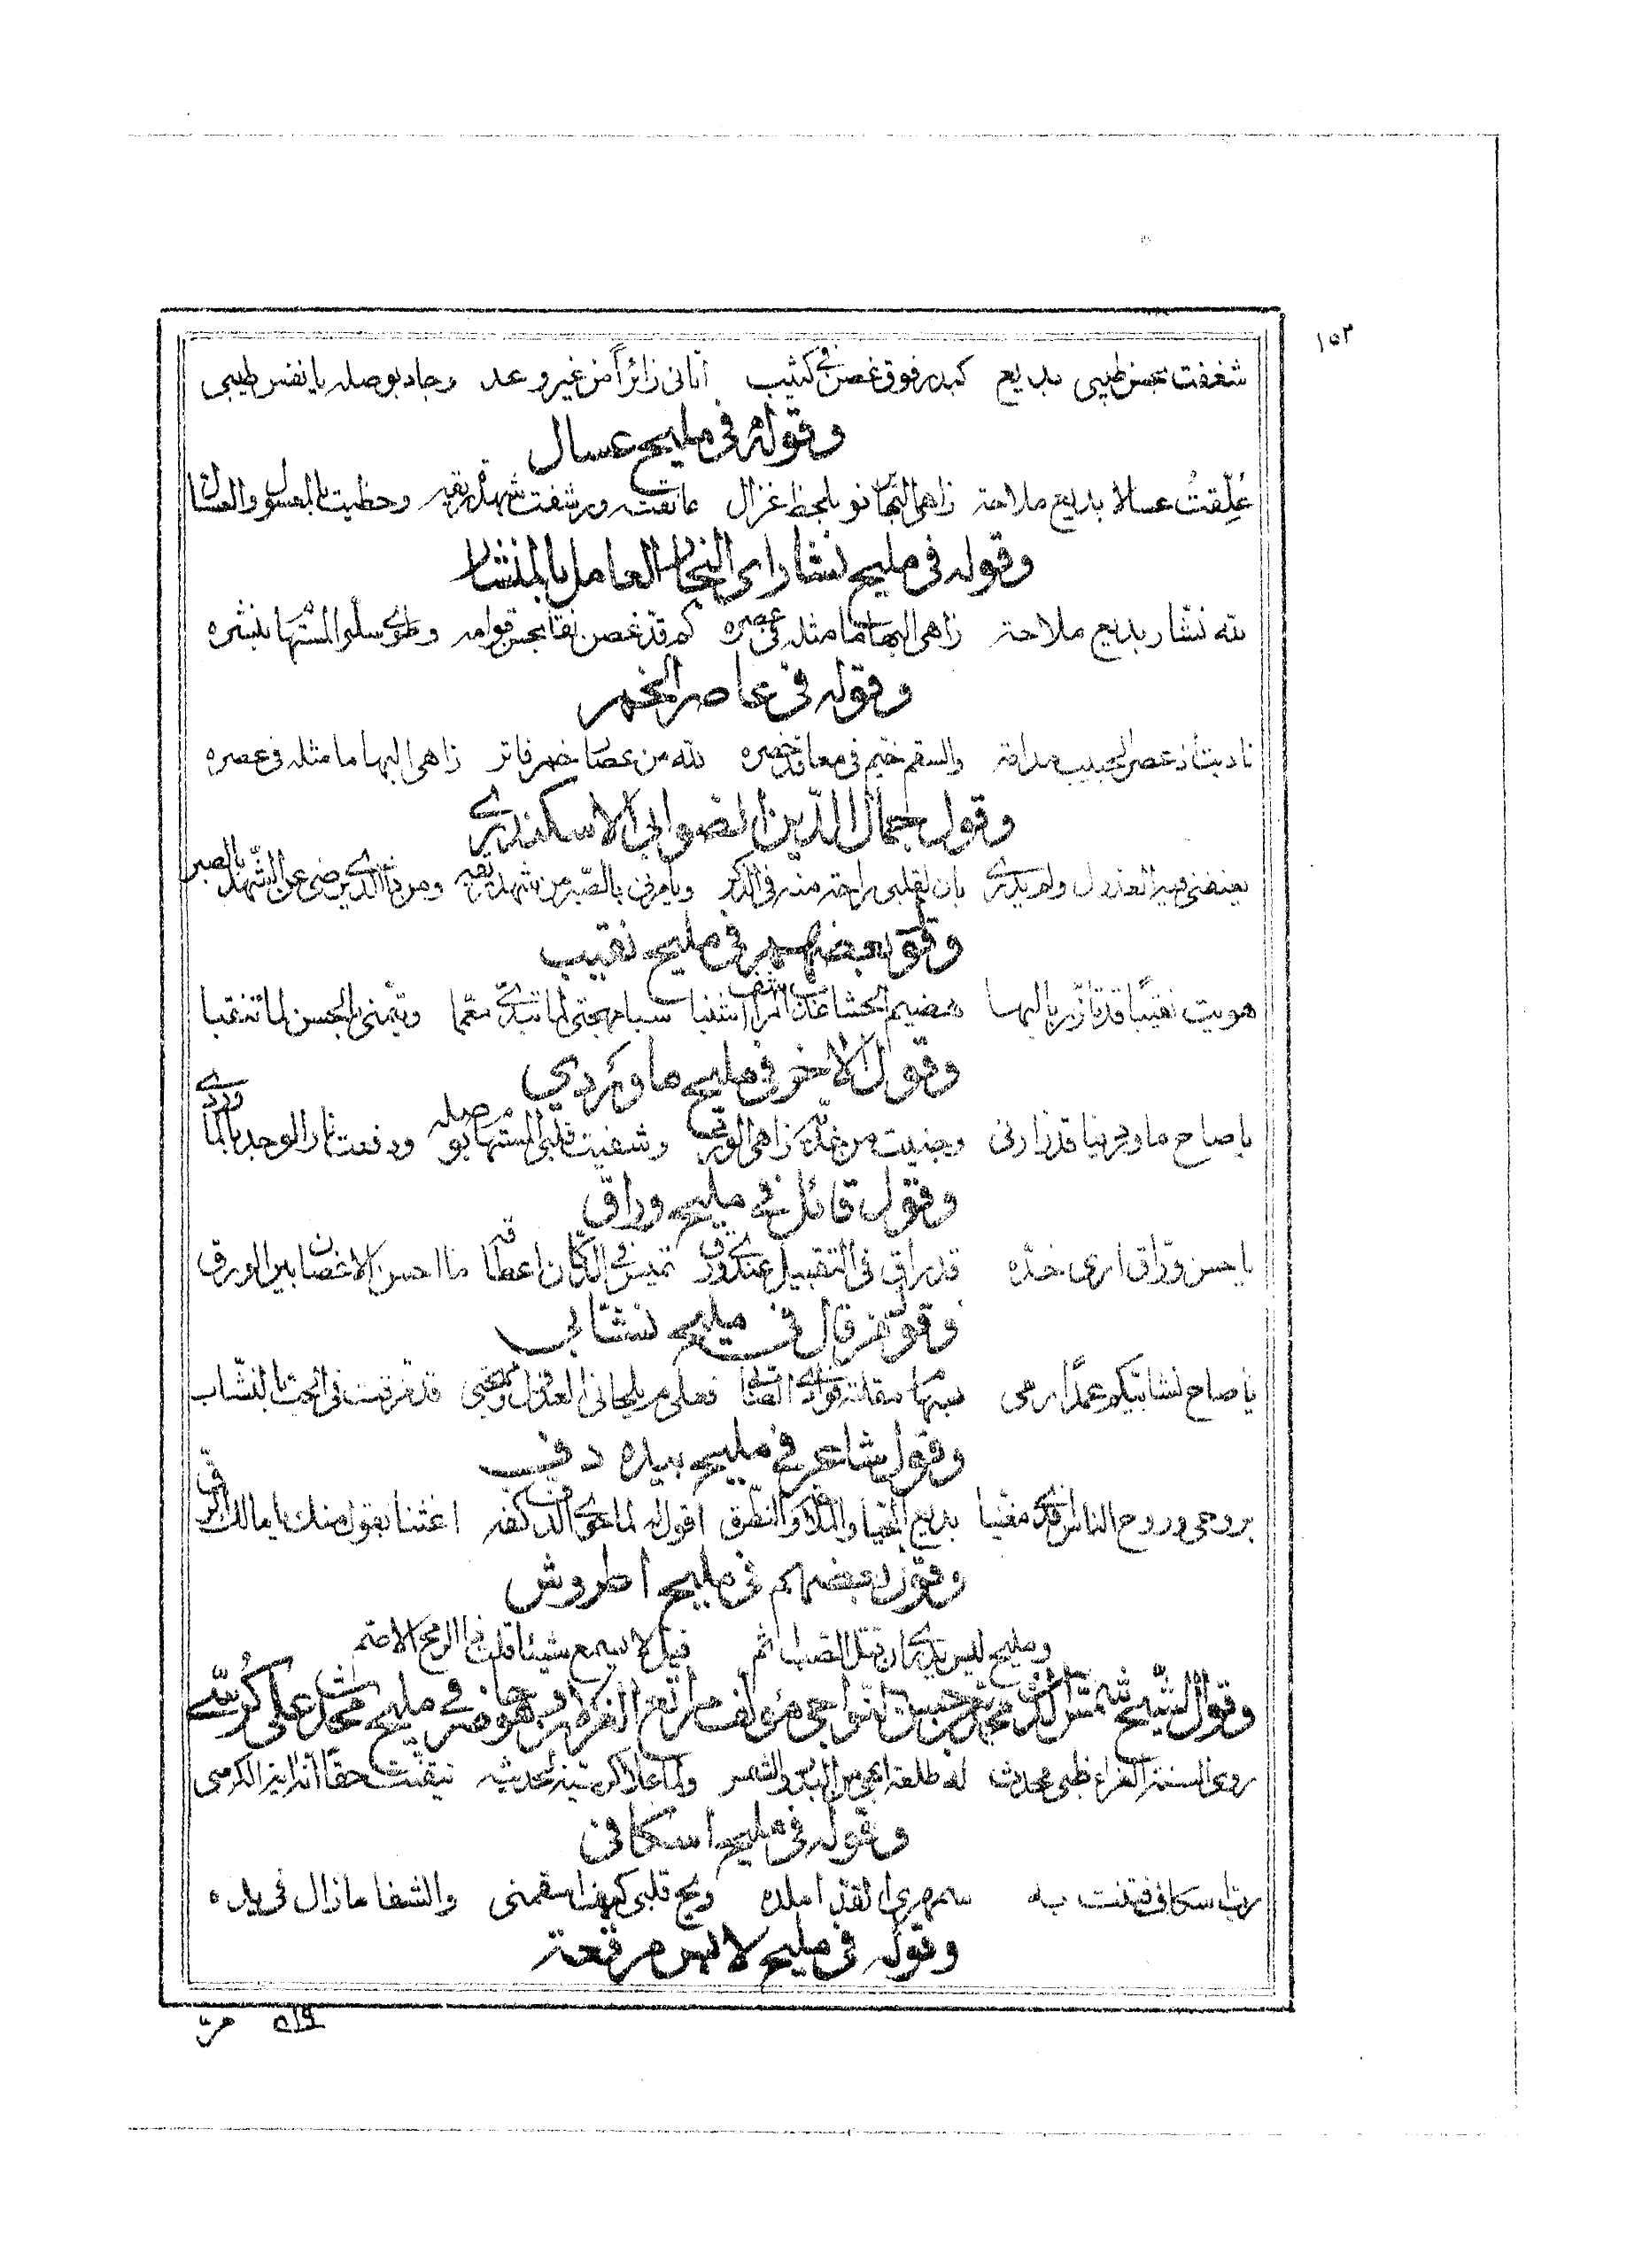 ١٥٣
شغفت بحسن طيبي بديع كبدر فوق غصن في كثيب أتاني زائراً من غير وعد وجاد بوصله يا نفس طيبي
وقوله في مليح عسال
عُلِّقتُ عسالا بديع ملاحة زاهي البها يرنو بلحظ غزال عانقته ورشفت شهد ريقه وحظيت بالمعسول والعسال
وقوله في مليح نشار اى النجار العامل بالمنشار
لله نشار بديع ملاحة زاهي البها ما مثله في عصره كم قد غصن نقا بحسن قوامه وطوى سلو المشتها بنشره
وقوله في عاصر الخمر
ناديت اذ عصر الحبيب مدامة والسقم خيم في معاقد خصره لله من عصار خمر فاتر زاهي البها ما مثله في عصره
وقول جمال الدين الصوابي الاسكندري
يعنفني فيه العذول ولم يدري بان لقلبي راحة منه في الذكر ويامرني بالصبر من شهد ريقه ومن ذا الذي يرضى عن الشهد بالصبر
وقول بعضهم في مليح نقيب
هويت نقيبًا قد تأزر بالبها هضيم الحشا عذب المراشف اشنبا سبا مهجتي لما تبدى معمما وتيمني بالحسن لما تنقبا
وقول الاخر في مليح ماوردي
يا صاح ماورديا قد زارني وجنيت من خده زاهي الورد وشفيت قلبي المشتها بوصله ودفعت نار الوجد بالماوردي
وقول قائل في مليح وراق
يا حسن ورّاق ارى خدّه قد راق في التقبيل عندي ورق تميس في الدكان اعطافه ما احسن الاغصان بين الورق
وقول من قال في مليح نشابي
يا صاح نشابيكم عمدًا رمى قد غرقت في البحث بالنشّاب
وقول شاعر في مليح بيده دف
بروحي وروح الناس افدي مغنيا بديع المحيا والملاحة والنطق اقول له لما حوى الدف كفه اغثنا بقول منك يا مالك الرق
وقول بعضهم في مليح اطروش
ومليح ليس يدري ان قتل الصب اثم قيل لا يسمع شيئا قلت ذا الرمح الاصم
وقول الشيخ شمس الدين محمد بن حسن النواجي مؤلف مراتع الغزلان وهو في مليح محدث على كرسي
روى السنة الغراء ظبي محدث له طلعة ابهى من البدر والشمس ولما علا كرسيه لحديثه تيقنت حقا انه اية الكرسي
وقوله في مليح اسكافي
رب اسكاف فتنت به سمهري القد املده ويح قلبي كم بهذا سقمني والشفا ما زال في يده
وقوله في مليح لابس مرقعة